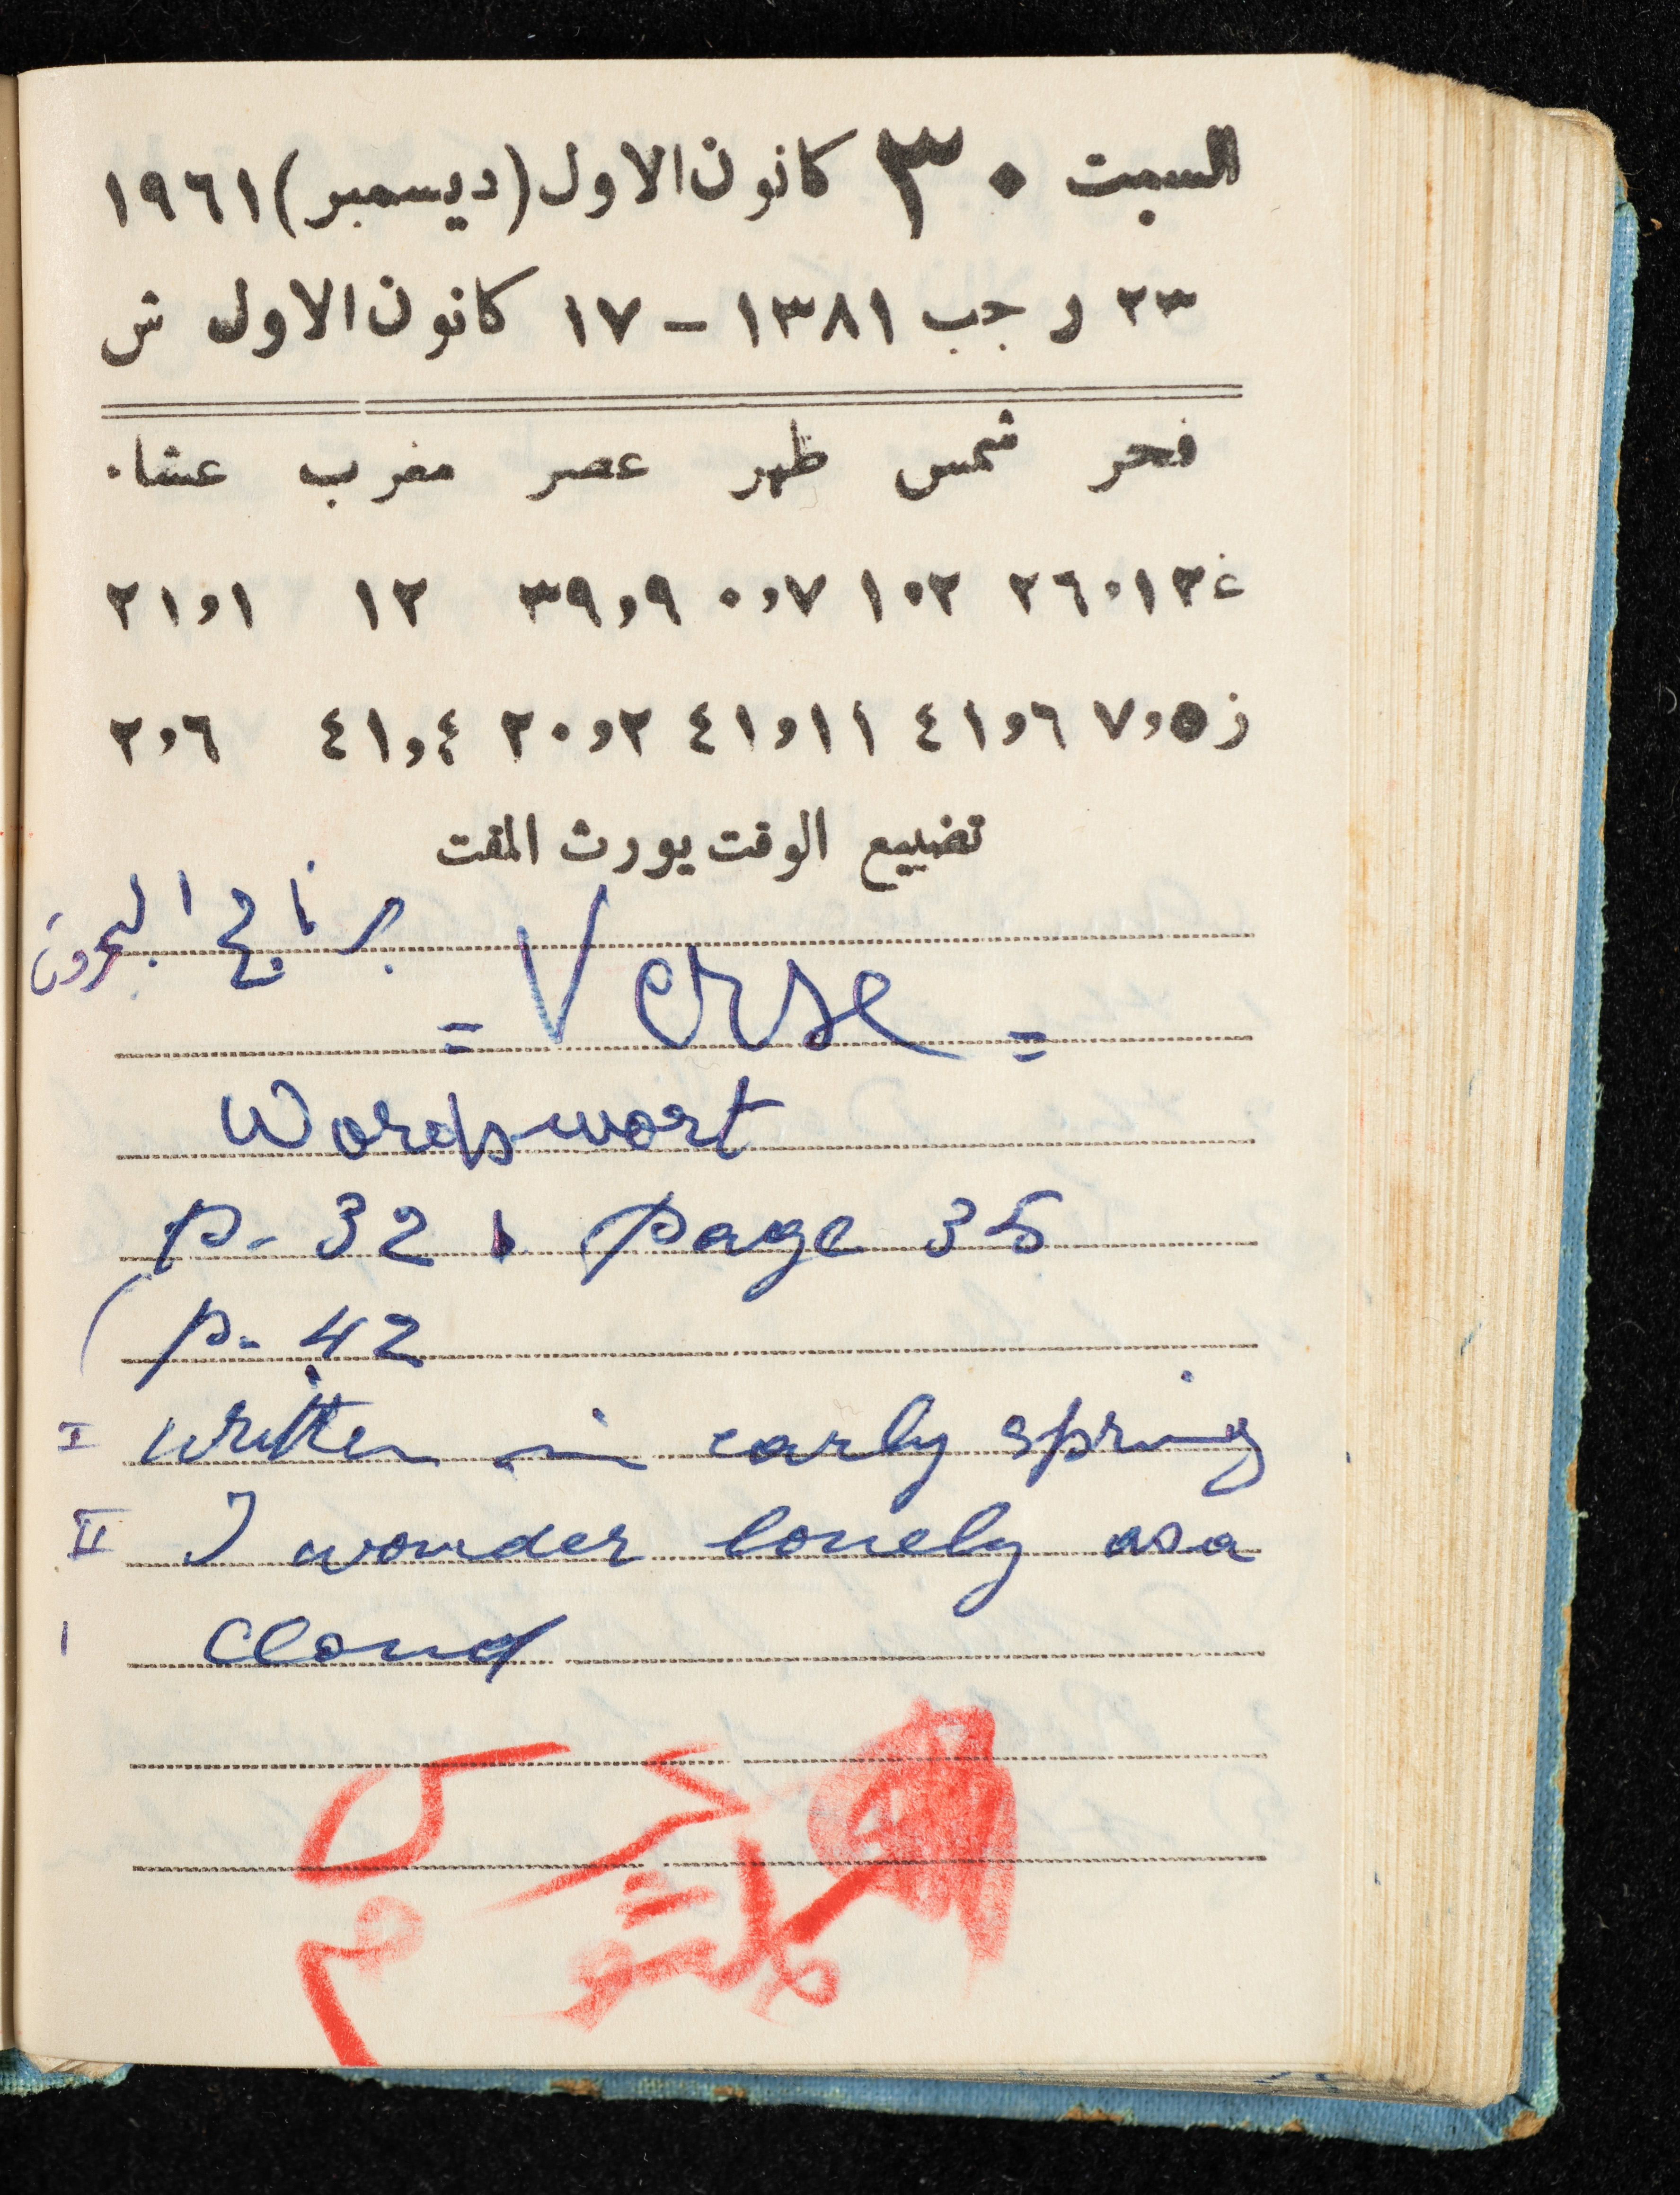 السبت ٣٠ كانون الاول (ديسمبر) ١٩٦١
٢٣ رجب ١٣٨١ - ١٧ كانون الاول ش
فجر شمس ظهر عصر مغرب عشاء
غ ١٢٠٢٦ ١٠٢ ٧,٠ ٩,٣٩ ١٢ ١,٢١
ز ٥,٧ ٦,٤١ ١١,٤١ ٢,٢٠ ٤,٤١ ٦,٢
تضييع الوقت يورث المقت
برنامج
= Verse =
Wordswort
p. 32 , page 35
( p. 42
I written in early spring
II I wonder lonely as a
cloud